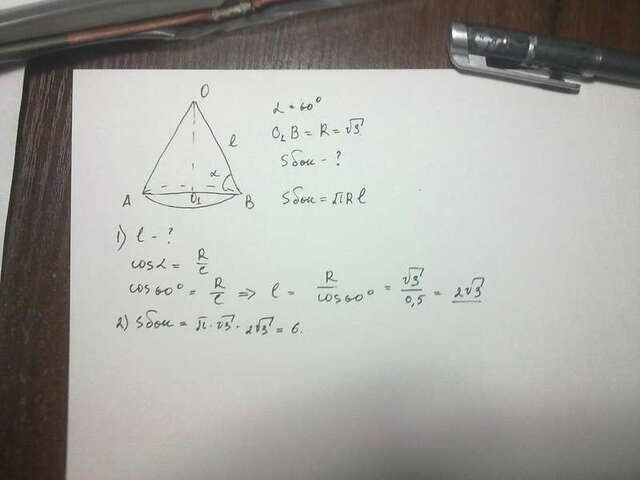 O
α = 60°
l
O₁B = R = √3
Sбок - ?
α
A
O₁
B
Sбок = πRl
1) l - ?
cosα = R/l
cos60° = R/l => l = R/cos60° = √3/0,5 = 2√3
2) Sбок = π·√3·2√3 = 6.